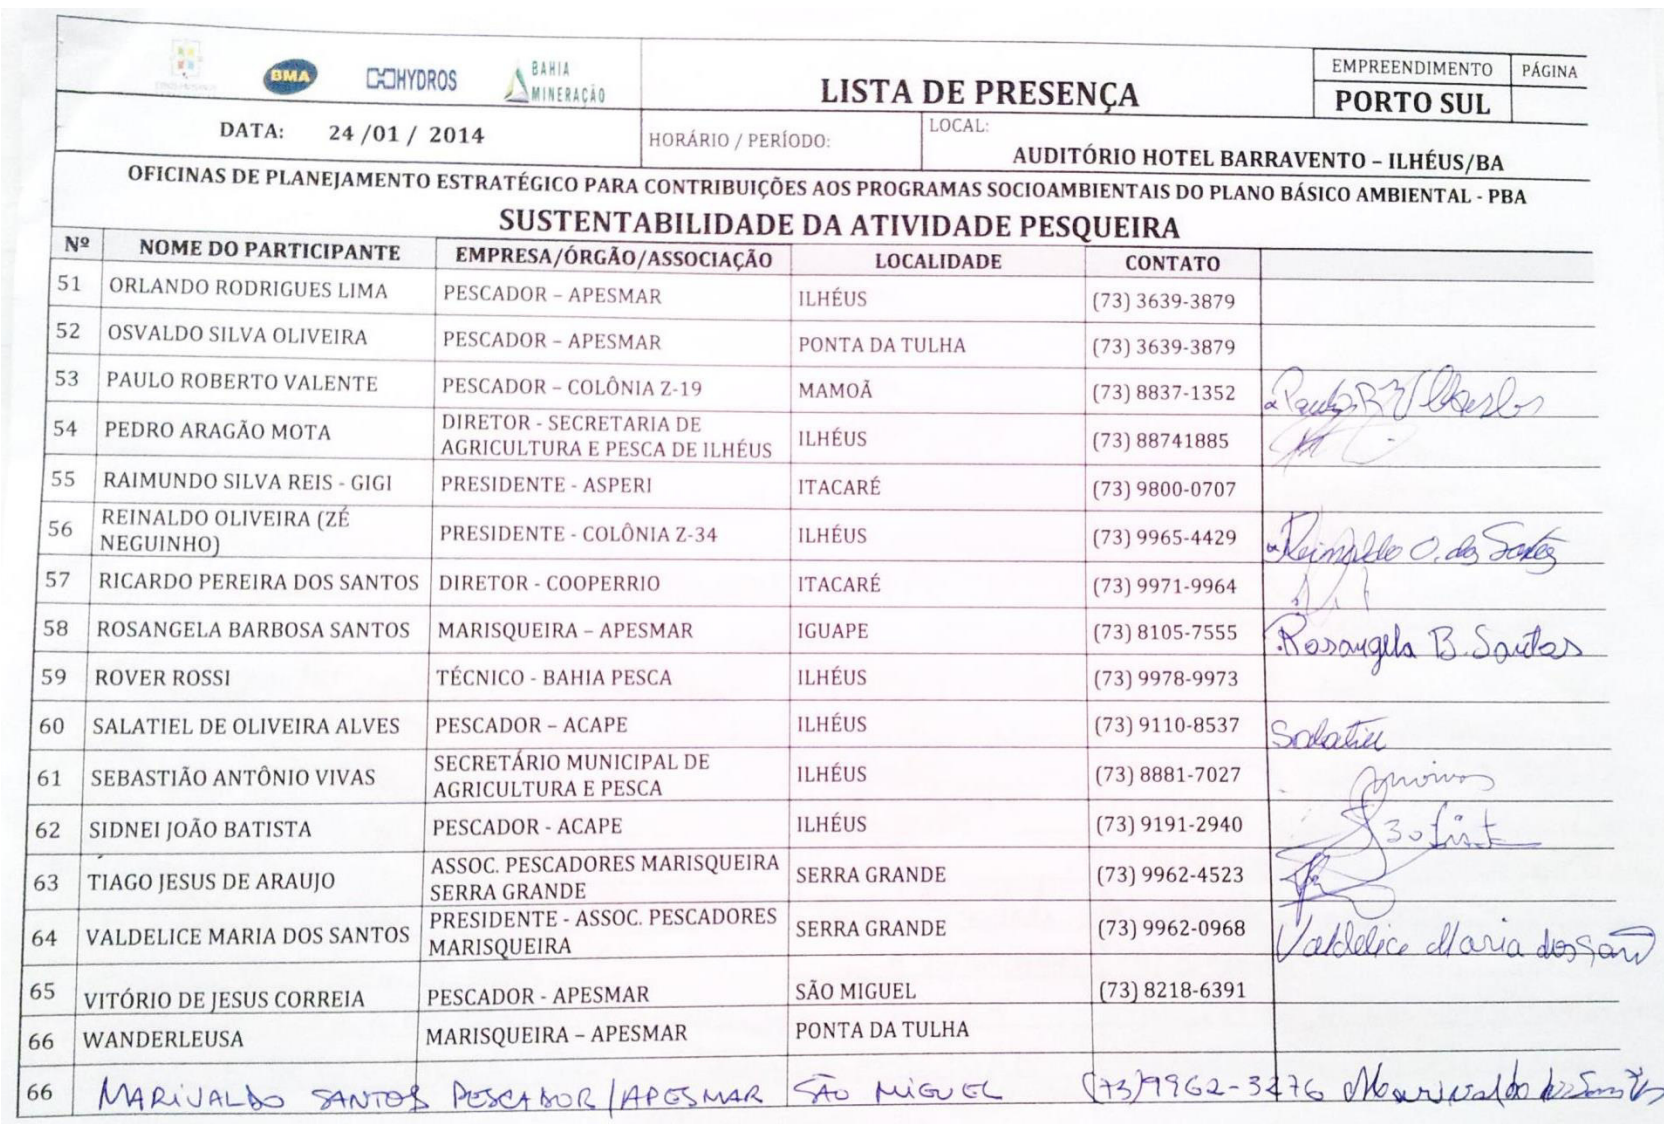 BMA HYDROS BAHIA MINERAÇÃO
LISTA DE PRESENÇA
EMPREENDIMENTO PÁGINA
PORTO SUL
DATA: 24 /01 / 2014 HORÁRIO / PERÍODO: LOCAL:
AUDITÓRIO HOTEL BARRAVENTO – ILHÉUS/BA
OFICINAS DE PLANEJAMENTO ESTRATÉGICO PARA CONTRIBUIÇÕES AOS PROGRAMAS SOCIOAMBIENTAIS DO PLANO BÁSICO AMBIENTAL - PBA
SUSTENTABILIDADE DA ATIVIDADE PESQUEIRA
Nº NOME DO PARTICIPANTE EMPRESA/ÓRGÃO/ASSOCIAÇÃO LOCALIDADE CONTATO
51 ORLANDO RODRIGUES LIMA PESCADOR – APESMAR ILHÉUS (73) 3639-3879
52 OSVALDO SILVA OLIVEIRA PESCADOR – APESMAR PONTA DA TULHA (73) 3639-3879
53 PAULO ROBERTO VALENTE PESCADOR – COLÔNIA Z-19 MAMOÃ (73) 8837-1352
54 PEDRO ARAGÃO MOTA DIRETOR - SECRETARIA DE AGRICULTURA E PESCA DE ILHÉUS ILHÉUS (73) 88741885
55 RAIMUNDO SILVA REIS - GIGI PRESIDENTE - ASPERI ITACARÉ (73) 9800-0707
56 REINALDO OLIVEIRA (ZÉ NEGUINHO) PRESIDENTE - COLÔNIA Z-34 ILHÉUS (73) 9965-4429 Reinaldo O. dos Santos
57 RICARDO PEREIRA DOS SANTOS DIRETOR - COOPERRIO ITACARÉ (73) 9971-9964
58 ROSANGELA BARBOSA SANTOS MARISQUEIRA – APESMAR IGUAPE (73) 8105-7555 Rosangela B. Santos
59 ROVER ROSSI TÉCNICO - BAHIA PESCA ILHÉUS (73) 9978-9973
60 SALATIEL DE OLIVEIRA ALVES PESCADOR – ACAPE ILHÉUS (73) 9110-8537 Salatiel
61 SEBASTIÃO ANTÔNIO VIVAS SECRETÁRIO MUNICIPAL DE AGRICULTURA E PESCA ILHÉUS (73) 8881-7027
62 SIDNEI JOÃO BATISTA PESCADOR - ACAPE ILHÉUS (73) 9191-2940
63 TIAGO JESUS DE ARAUJO ASSOC. PESCADORES MARISQUEIRA SERRA GRANDE SERRA GRANDE (73) 9962-4523
64 VALDELICE MARIA DOS SANTOS PRESIDENTE - ASSOC. PESCADORES MARISQUEIRA SERRA GRANDE (73) 9962-0968 Valdelice Maria dos
65 VITÓRIO DE JESUS CORREIA PESCADOR - APESMAR SÃO MIGUEL (73) 8218-6391
66 WANDERLEUSA MARISQUEIRA – APESMAR PONTA DA TULHA
66 MARIVALDO SANTOS PESCADOR/APESMAR SÃO MIGUEL (73)9962-3276 Marivaldo